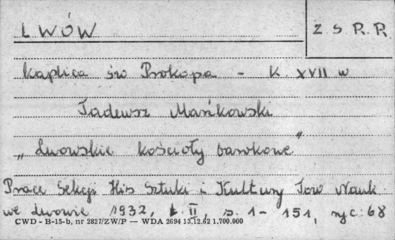 LWÓW
Z.S.R.R.
Kaplica św Prokopa - K. XVII w
Tadeusz Mańkowski
„Lwowskie kościoły barokowe"
Prace Sekcji His Sztuki i Kultury Tow Nauk
we Lwowie 1932, t. II, s. 1-151, ryc. 68
CWD - B-15-b, nr 2827/ZW/P — WDA 2694 13.12.62 1.700.000